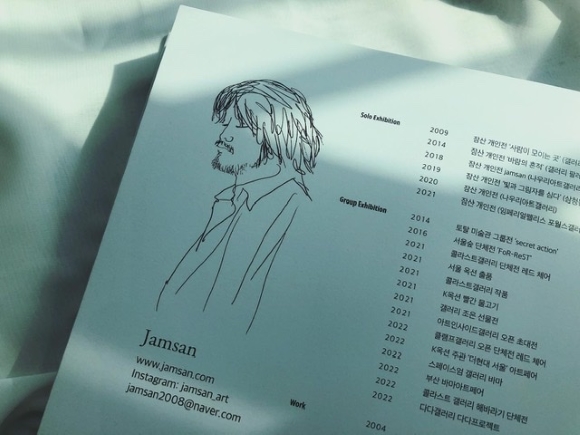 Solo Exhibition
2009 잠산 개인전 '사람이 모이는 곳' (갤러리
2014 잠산 개인전 '바람의 흔적' (갤러리
2018 잠산 개인전 jamsan (나우리아트갤러리)
2019 잠산 개인전 '빛과 그림자를 삼다' (삼청
2020 잠산 개인전 (나우리아트갤러리)
2021 잠산 개인전 (임페리얼팰리스 포월스갤러
Group Exhibition
2014 토탈 미술관 그룹전 'secret action'
2016 서울숲 단체전 'FoR-ReST'
2021 콜라스트갤러리 단체전 레드 체어
2021 서울 옥션 출품
2021 콜라스트갤러리 작품
2021 K옥션 빨간 물고기
2021 갤러리 조은 선물전
2021 아트인사이드갤러리 오픈 초대전
2022 플램프갤러리 오픈 단체전 레드 체어
2022 K옥션 주관 '더현대 서울' 아트페어
2022 스페이스엄 갤러리 바마
2022 부산 바마아트페어
2022 콜라스트 갤러리 해바라기 단체전
2022 다다갤러리 다다프로젝트
Work
2004
Jamsan
www.jamsan.com
Instagram: jamsan_art
jamsan2008@naver.com